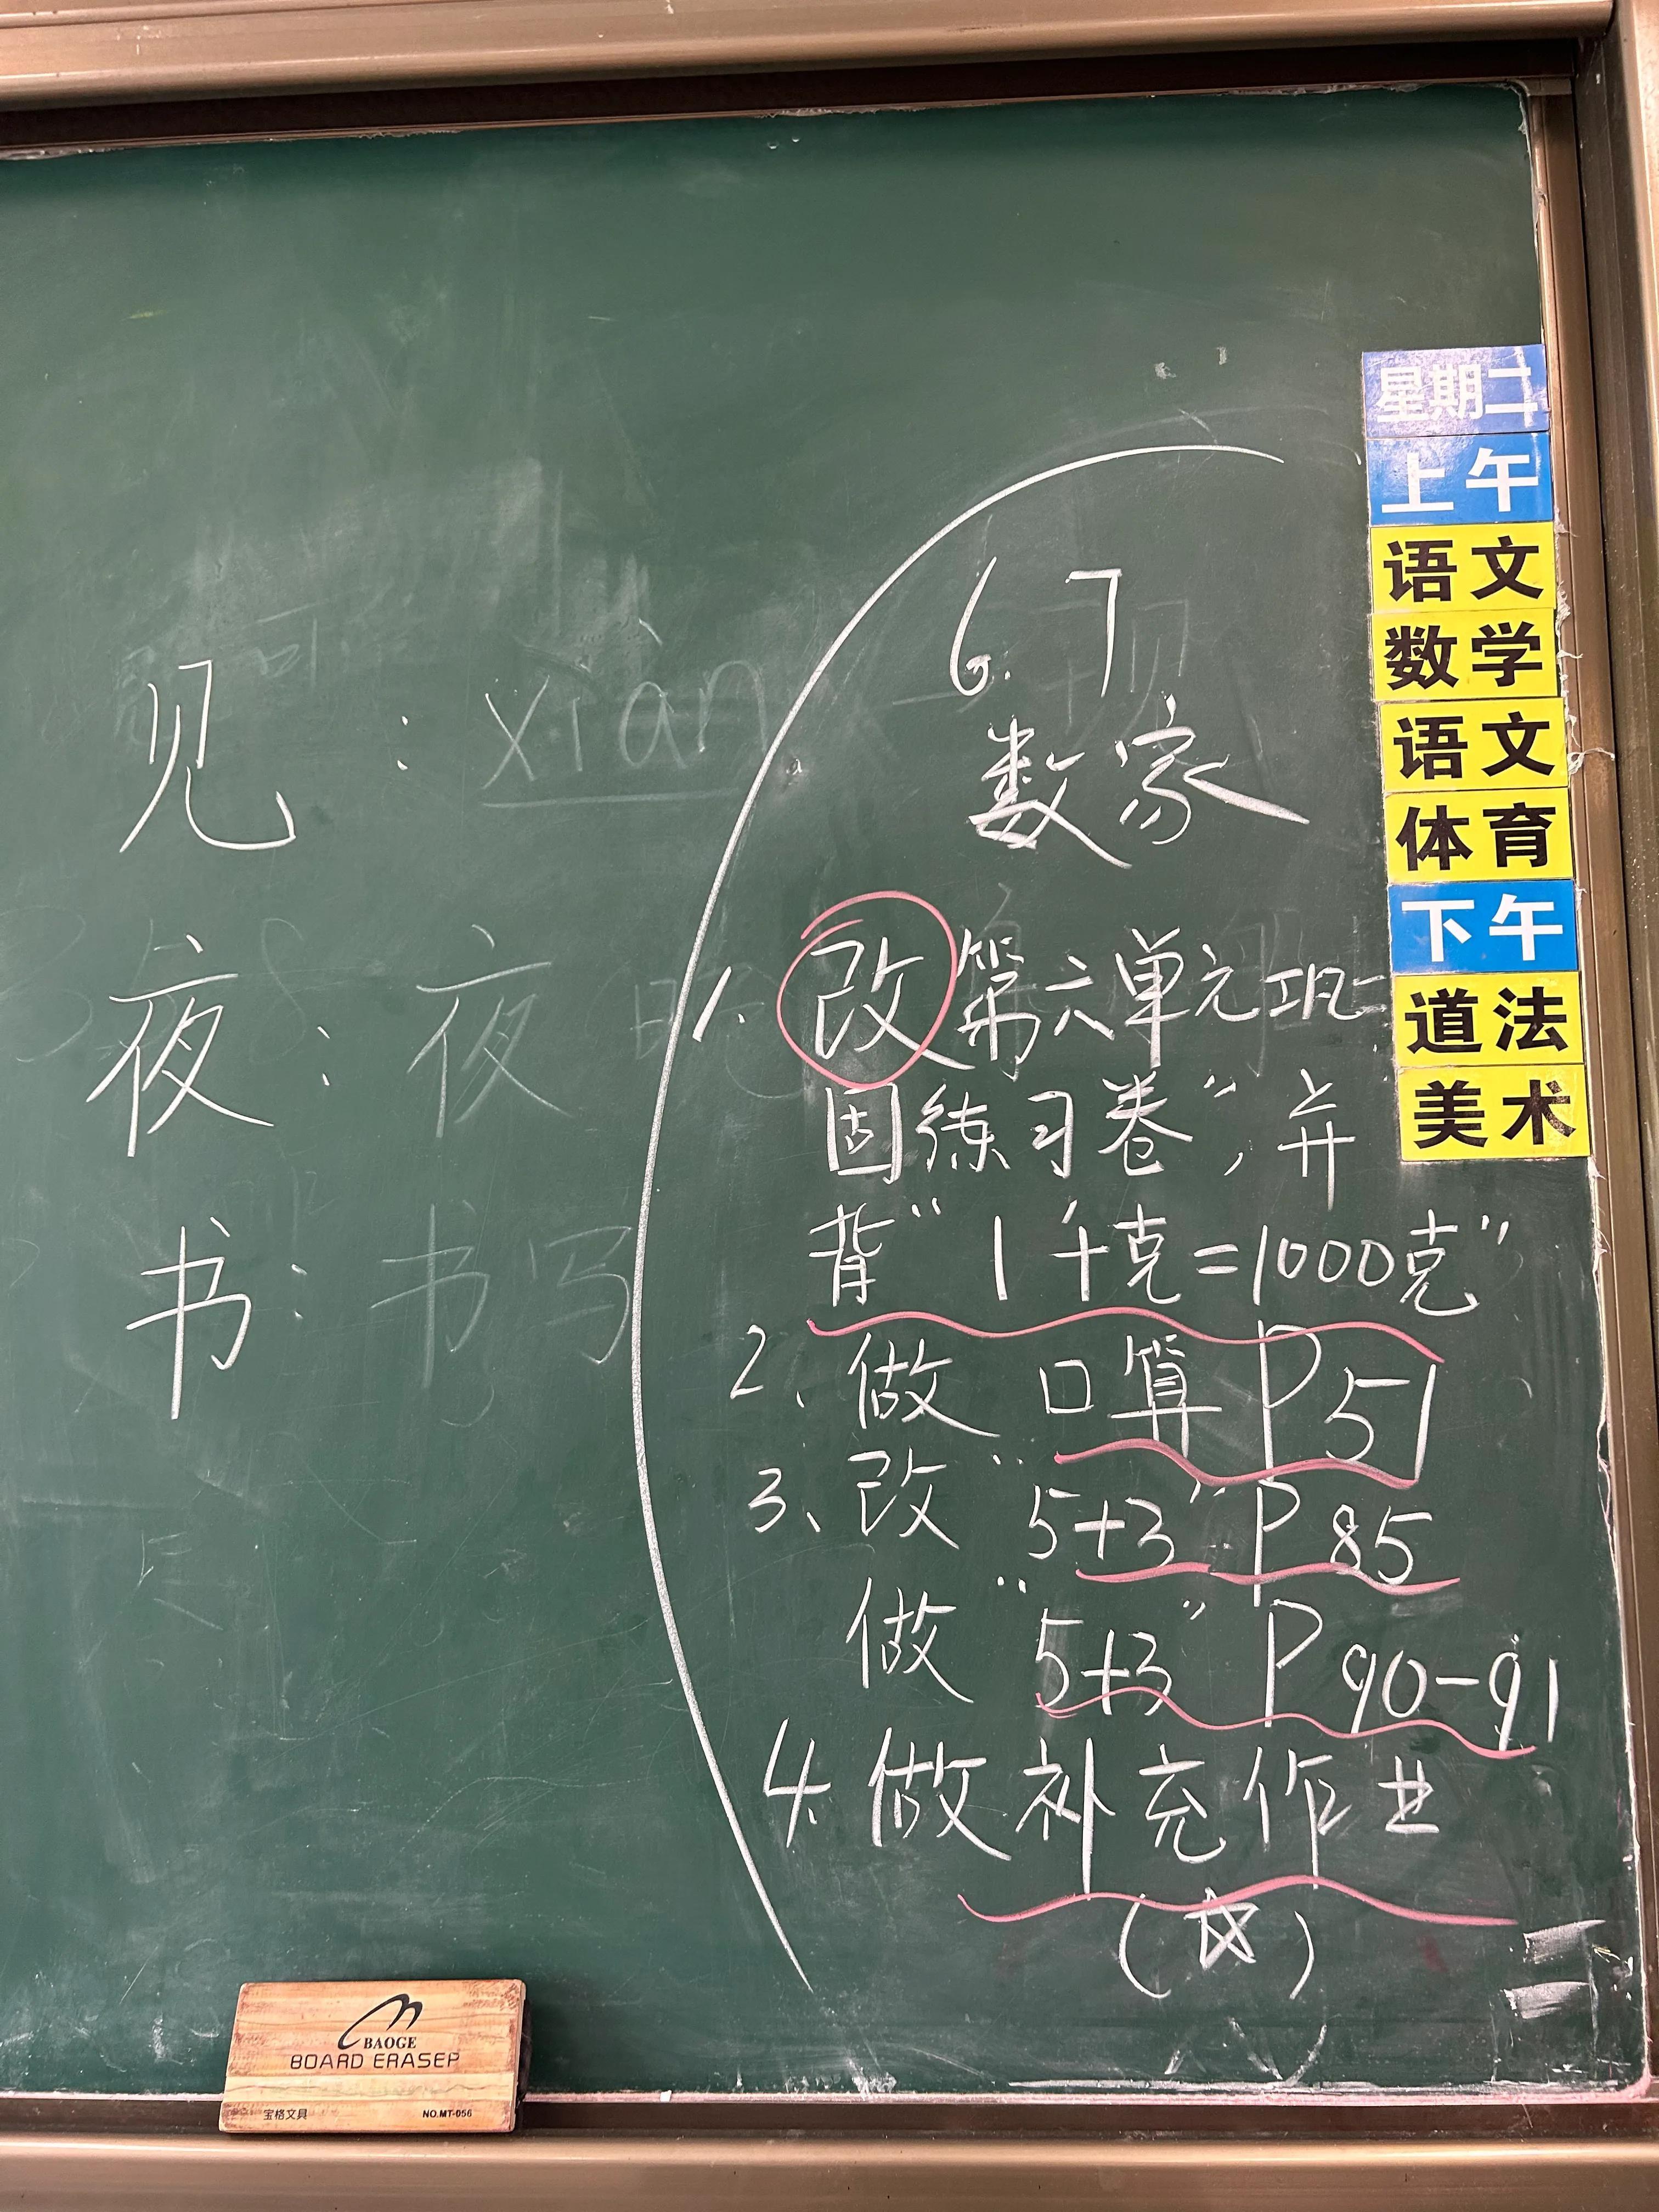 见：xiàn
夜：夜
书：书写
6.7
数家
1.改第六单元巩
固练习卷”，并
背“1千克=1000克”
2、做 口算P51
3、改“5+3”P85
做“5+3”P90-91
4.做补充作业
(☆)
星期二
上午
语文
数学
语文
体育
下午
道法
美术
BAOGE
BOARD ERASER
宝格文具 NO.MT-056